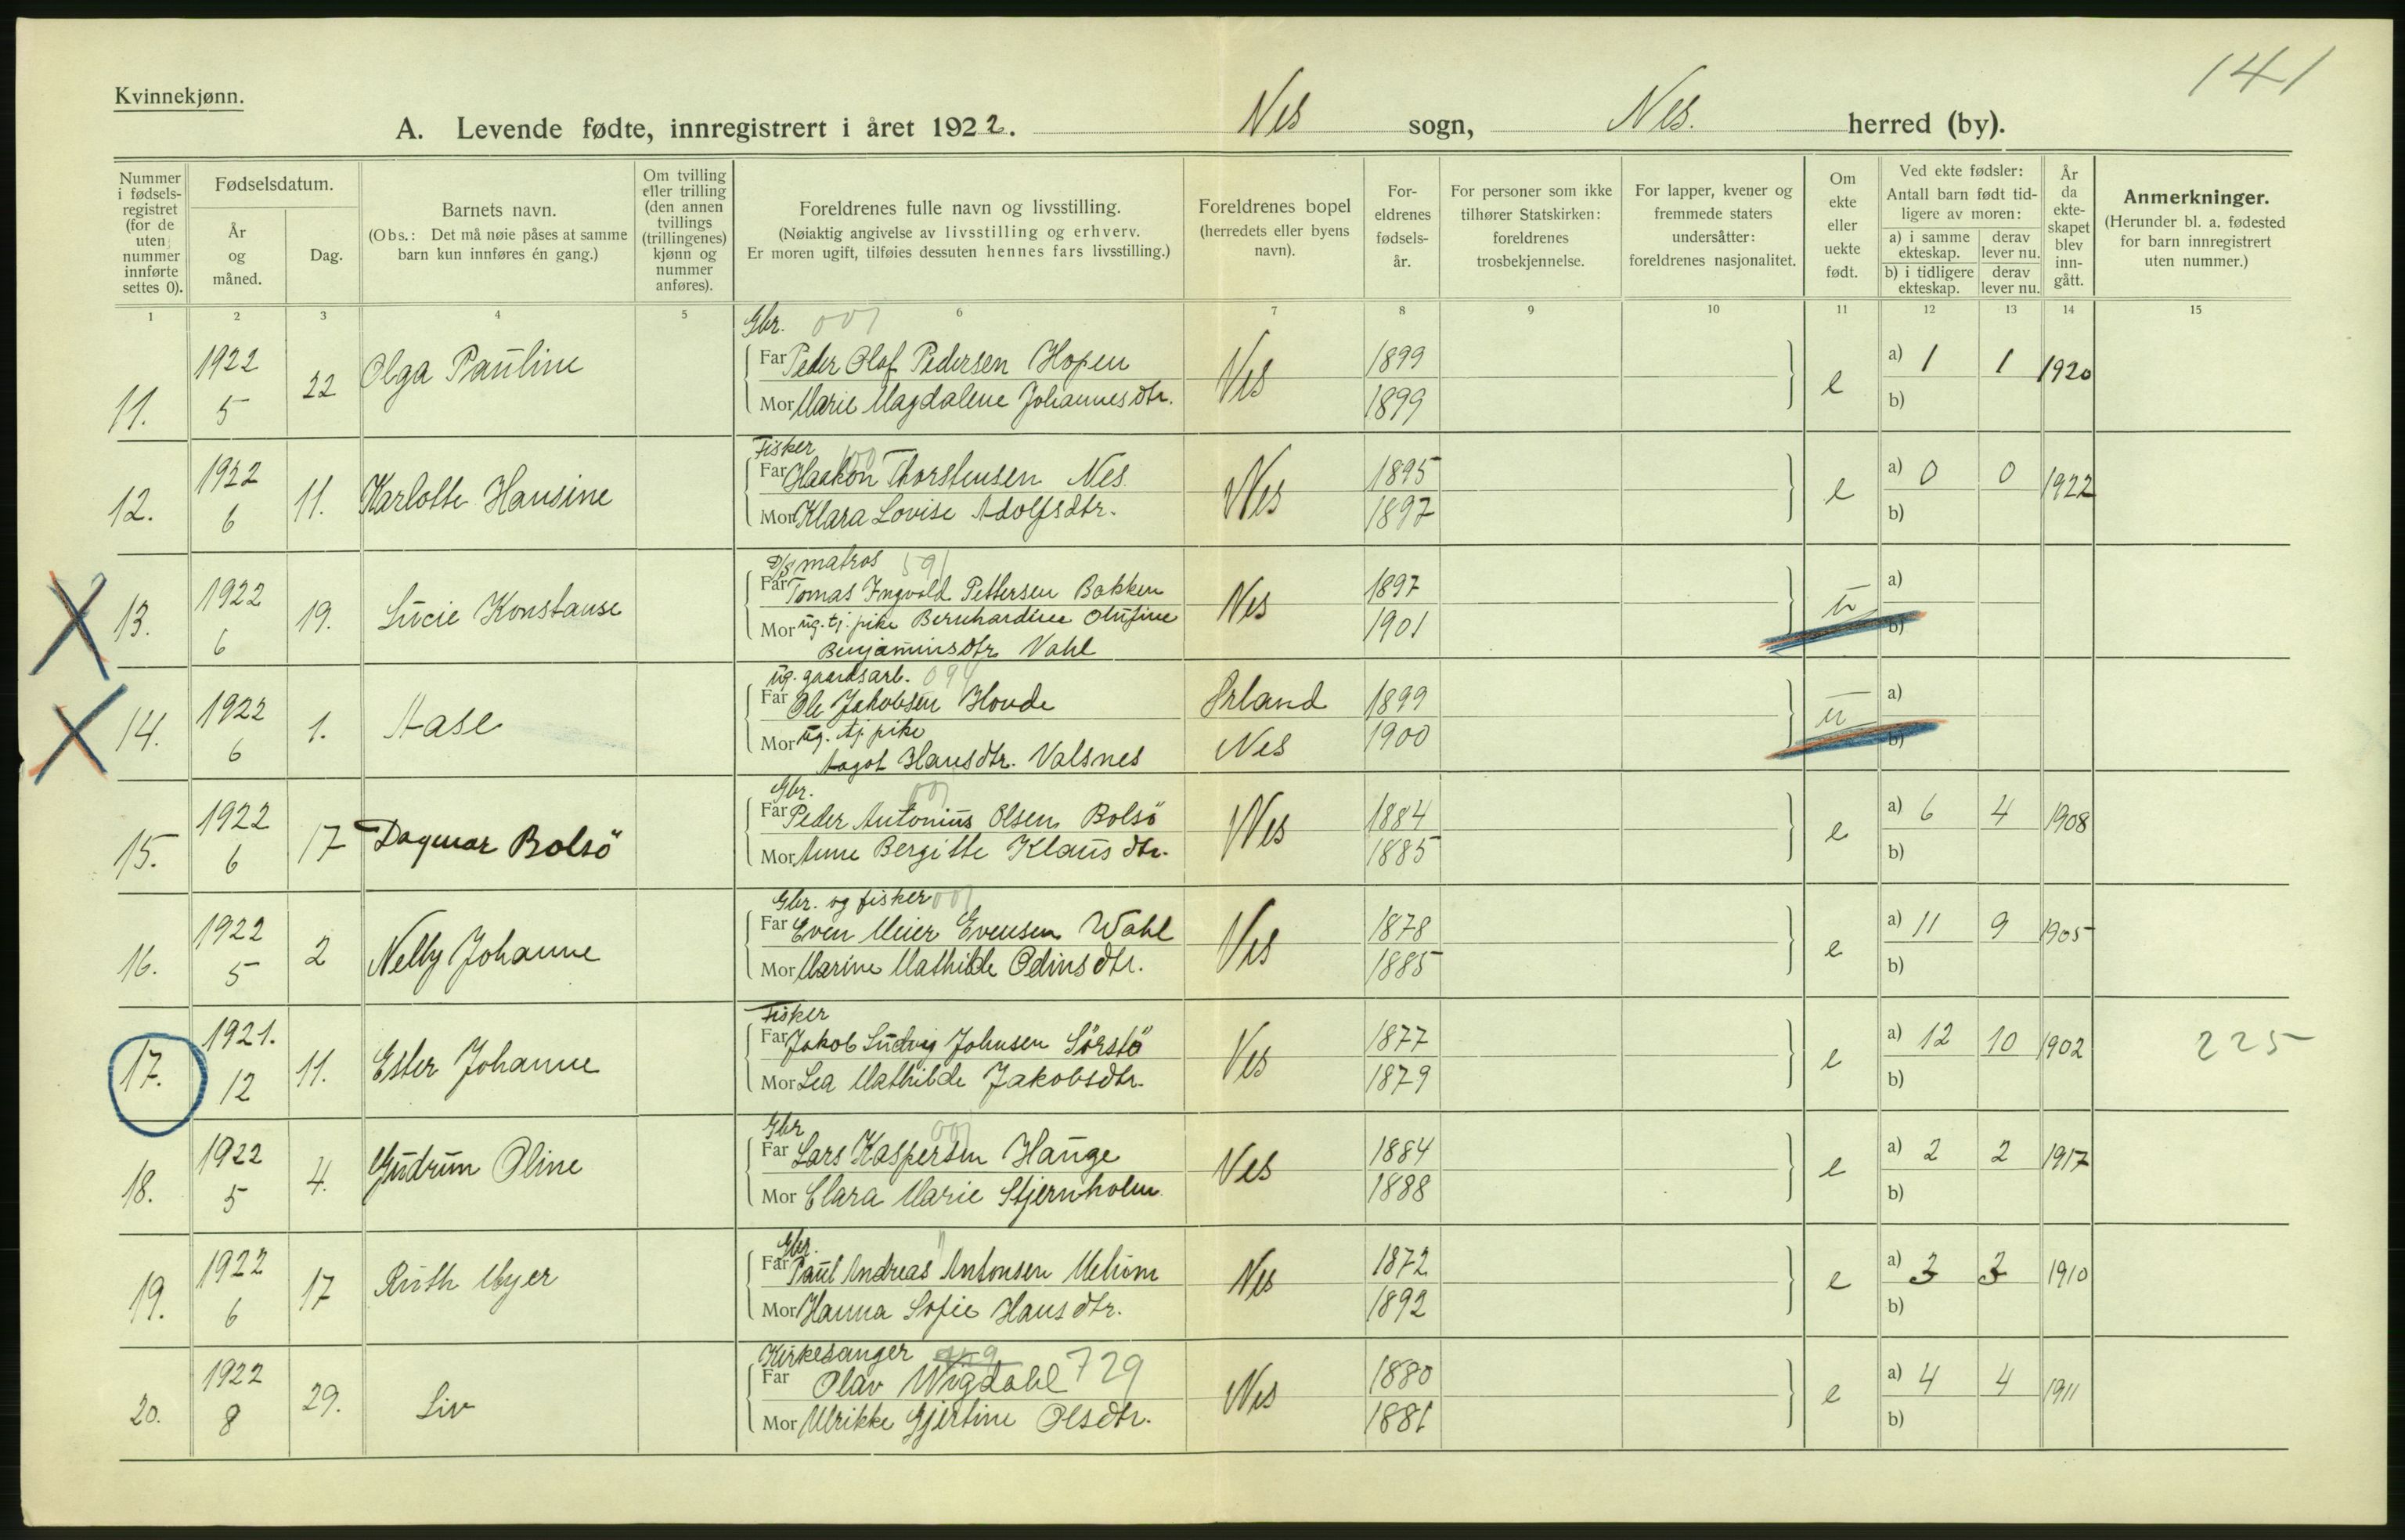 141
Kvinnekjønn.
A. Levende fødte, innregistrert i året 1922. Nes sogn, Nes. herred (by).
Nummer i fødsels-registret (for de uten nummer innførte settes 0).
Fødselsdatum.
År og måned.
Dag.
Barnets navn.
(Obs.: Det må nøie påses at samme barn kun innføres én gang.)
Om tvilling eller trilling (den annen tvillings (trillingenes) kjønn og nummer anføres).
Foreldrenes fulle navn og livsstilling.
(Nøiaktig angivelse av livsstilling og erhverv.
Er moren ugift, tilføies dessuten hennes fars livsstilling.)
Foreldrenes bopel (herredets eller byens navn).
For-eldrenes fødsels-år.
For personer som ikke tilhører Statskirken: foreldrenes trosbekjennelse.
For lapper, kvener og fremmede staters undersåtter: foreldrenes nasjonalitet.
Om ekte eller uekte født.
Ved ekte fødsler: Antall barn født tid-ligere av moren:
a) i samme ekteskap. derav lever nu.
b) i tidligere ekteskap. derav lever nu.
År da ekte-skapet blev inn-gått.
Anmerkninger.
(Herunder bl. a. fødested for barn innregistrert uten nummer.)
1 2 3 4 5 6 7 8 9 10 11 12 13 14 15
Gbr. 001
11. 1922 5 22 Olga Pauline
Far Peder Olaf Pedersen Hopen Nes 1899 e a) 1 1 1920
Mor Marie Magdalene Johannesdtr. 1899 b)
Fisker 100
12. 1922 6 11. Karlotte Hansine
Far Haakon Thorstensen Nes. Nes 1895 e a) 0 0 1922
Mor Klara Lovise Adolfsdtr. 1897 b)
D/S matros 591
13. 1922 6 19. Lucie Konstanse
Far Tomas Ingvold Pettersen Bakken Nes 1897 u a)
Mor ug. tj. pike Bernhardine Olufine 1901 b)
Benjaminsdtr Vahl
ug. gaardsarb. 094
14. 1922 6 1. Aase
Far Ole Jakobsen Hovde Ørland 1899 u a)
Mor ug. tj. pike Nes 1900 b)
Aagot Hansdtr. Valsnes
Gbr. 001
15. 1922 6 17 Dagmar Bolsö
Far Peder Antonius Olsen Bolsö Nes 1884 e a) 6 4 1908
Mor Anne Bergitte Klausdtr. 1885 b)
Gbr. og fisker 001
16. 1922 5 2 Nelly Johanne
Far Even Meier Evensen Wahl Nes 1878 e a) 11 9 1905
Mor Marine Mathilde Odinsdtr. 1885 b)
Fisker
17. 1921. 12 11. Ester Johanne
Far Jakob Ludvig Johnsen Sörstö Nes 1877 e a) 12 10 1902 225
Mor Lea Mathilde Jakobsdtr. 1879 b)
Gbr 001
18. 1922 5 4. Gudrun Oline
Far Lars Kaspersen Hauge Nes 1884 e a) 2 2 1917
Mor Clara Marie Stjernholm 1888 b)
Gbr. "
19. 1922 6 17 Ruth Myer
Far Paul Andreas Antonsen Melum Nes 1872 e a) 3 3 1910
Mor Hanna Sofie Hansdtr. 1892 b)
Kirkesanger 729
20. 1922 8 29. Liv
Far Olav Wigdahl Nes 1880 e a) 4 4 1911
Mor Ulrikke Gjertine Olsdtr. 1881 b)